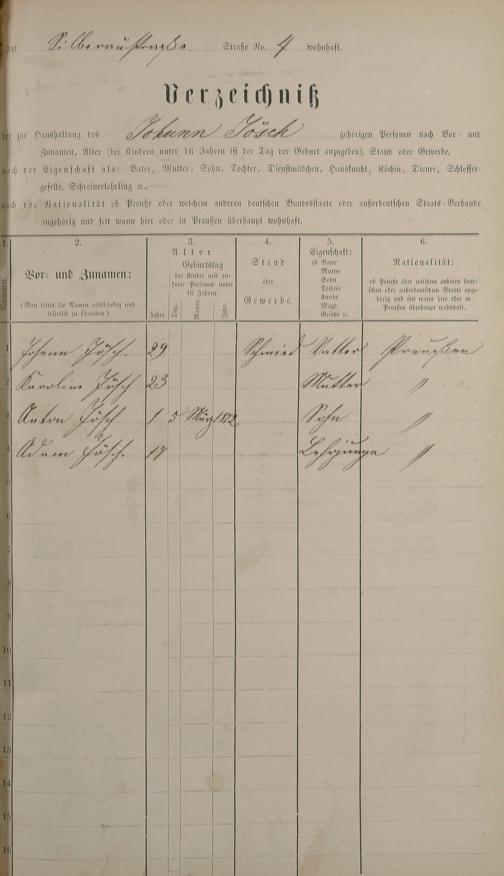 Silberaustraße. Straße No. 4 wohnhaft.
Verzeichniß
der zur Haushaltung des Johann Jösch gehörigen Personen nach Vor- und
Zunamen, Alter (bei Kindern unter 16 Jahren ist der Tag der Geburt anzugeben), Stand oder Gewerbe,
nach der Eigenschaft als: Vater, Mutter, Sohn, Tochter, Dienstmädchen, Hausknecht, Köchin, Diener, Schlosser-
geselle, Schreinerlehrling ꝛc.,
nach der Nationalität ob Preuße oder welchem anderen deutschen Bundesstaate oder außerdeutschen Staats-Verbande
angehörig und seit wann hier oder in Preußen überhaupt wohnhaft.
1. 2. 3. 4. 5. 6.
Nummer.
Vor- und Zunamen:
(Man bittet die Namen vollständig und
leserlich zu schreiben.)
Alter
Geburtstag
der Kinder und an-
derer Personen unter
16 Jahren.
Jahre. Tag. Monat. Jahr.
Stand
oder
Gewerbe.
Eigenschaft:
ob Vater
Mutter
Sohn
Tochter
Knecht
Magd
Geselle u.
Nationalität:
ob Preuße oder welchem anderen deut-
schen oder außerdeutschen Staate ange-
hörig und seit wann hier oder in
Preußen überhaupt wohnhaft.
1 Johann Jösch. 29 Schmied Vatter Preußen
2 Karoline Jösch 23 Mutter "
3 Anton Jösch 1 5 März 1872 Sohn "
4 Adam Jösch. 17 Lehrjunge "
5
6
7
8
9
10
11
12
13
14
15
16